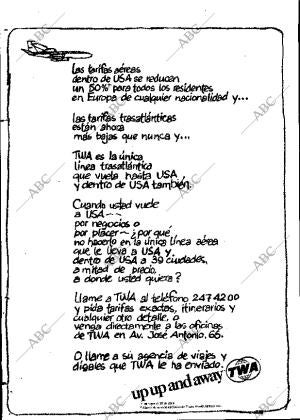 Las tarifas aéreas
dentro de USA se reducen
un 50%* para todos los residentes
en Europa de cualquier nacionalidad y...
las tarifas trasatlánticas
están ahora
más bajas que nunca y...
TWA es la única
línea trasatlántica
que vuela hasta USA,
y dentro de USA también.
Cuando usted vuele
a USA -
por negocios o
por placer - ¿por qué
no hacerlo en la única línea aérea
que le lleva a USA y
dentro de USA a 39 ciudades,
a mitad de precio,
a donde usted quiera?
Llame a TWA al teléfono 247 42 00
y pida tarifas exactas, itinerarios y
cualquier otro detalle, o
venga directamente a las oficinas
de TWA en Av. José Antonio, 66.
O llame a su agencia de viajes y
dígales que TWA le ha enviado.
up up and away TWA